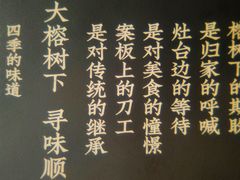 榕树下的期盼
是归家的呼喊
灶台边的等待
是对美食的憧憬
案板上的刀工
是对传统的继承
大榕树下 寻味顺
四季的味道